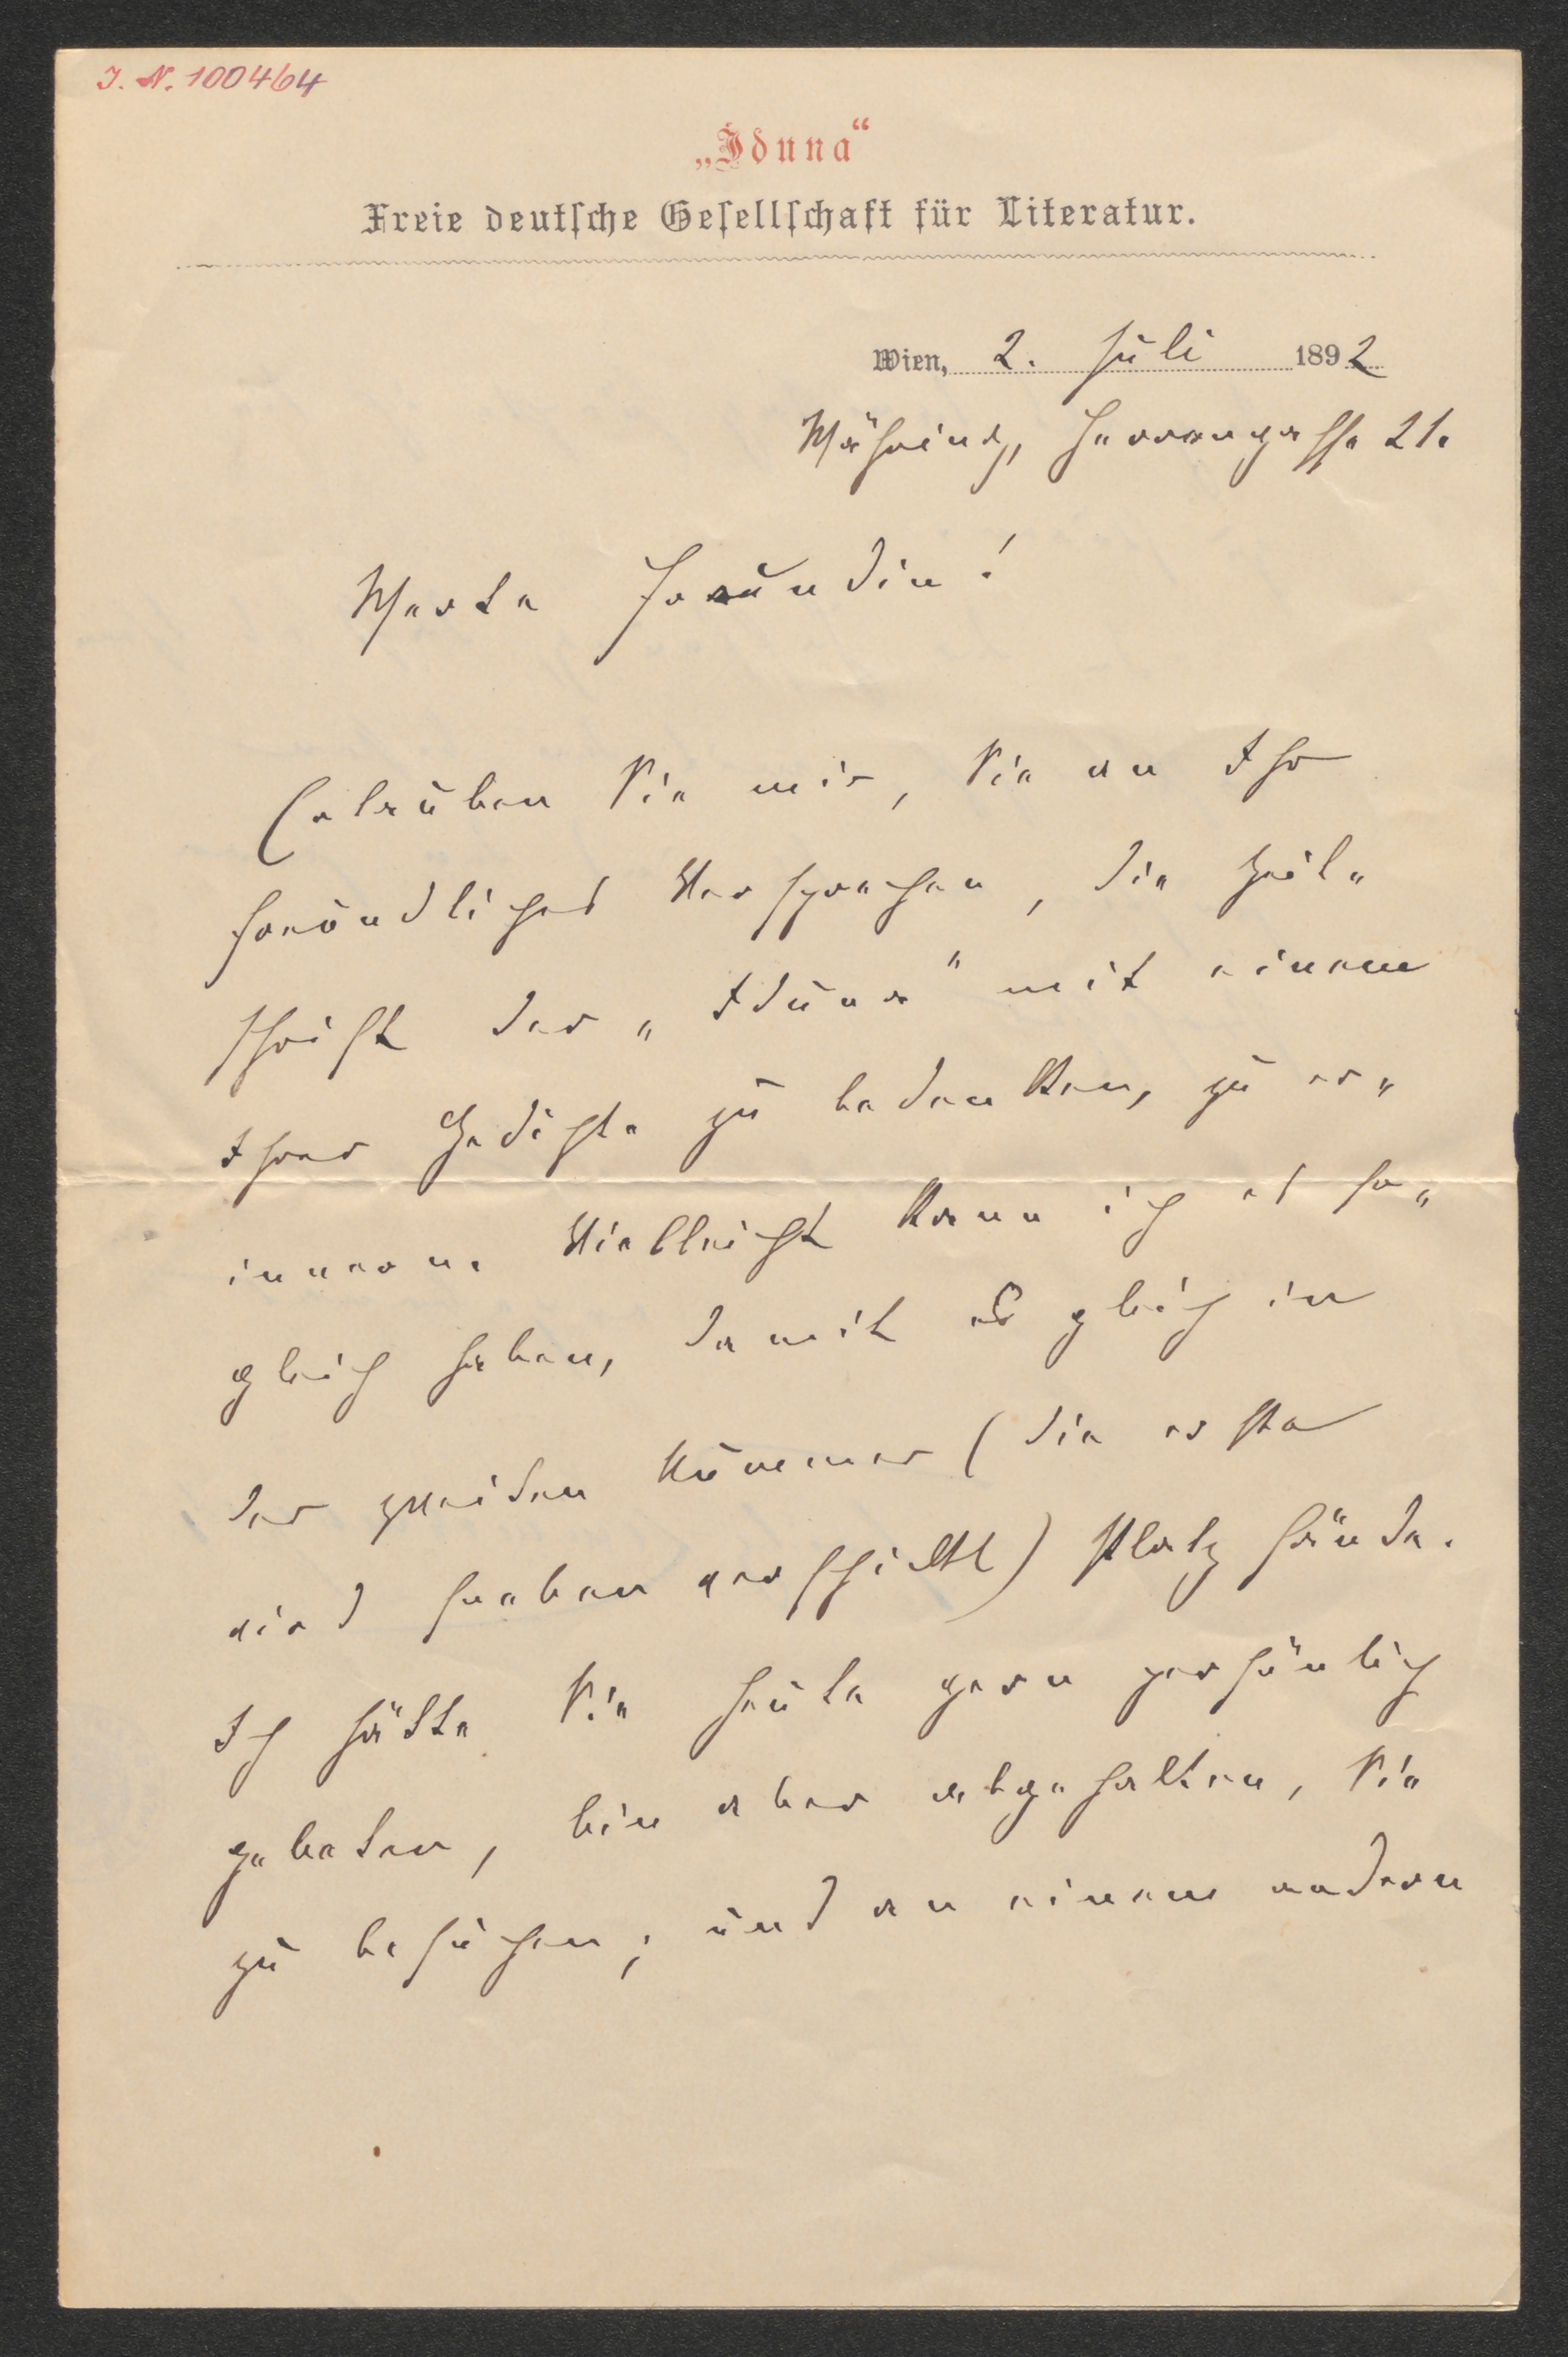 I. N. 100464
„Iduna“
Freie deutſche Geſellſchaft für Literatur.
Wien, 2. Juli 1892
Währing, Herrengasse 21.
Werte Freundin!
Erlauben Sie mir, Sie an Ihr
freundliches Versprechen, die Zeit„
schrift der „Iduna“ mit einem
Ihrer Gedichte zu bedenken, zu er„
innern. Vielleicht kann ich es so„
gleich haben, damit es gleich in
der zweiten Nummer (die erste
wird soeben verschickt) Platz fände.
Ich hätte Sie heute gern persönlich
gebeten, bin aber abgehalten, Sie
zu besuchen; und an einem andern